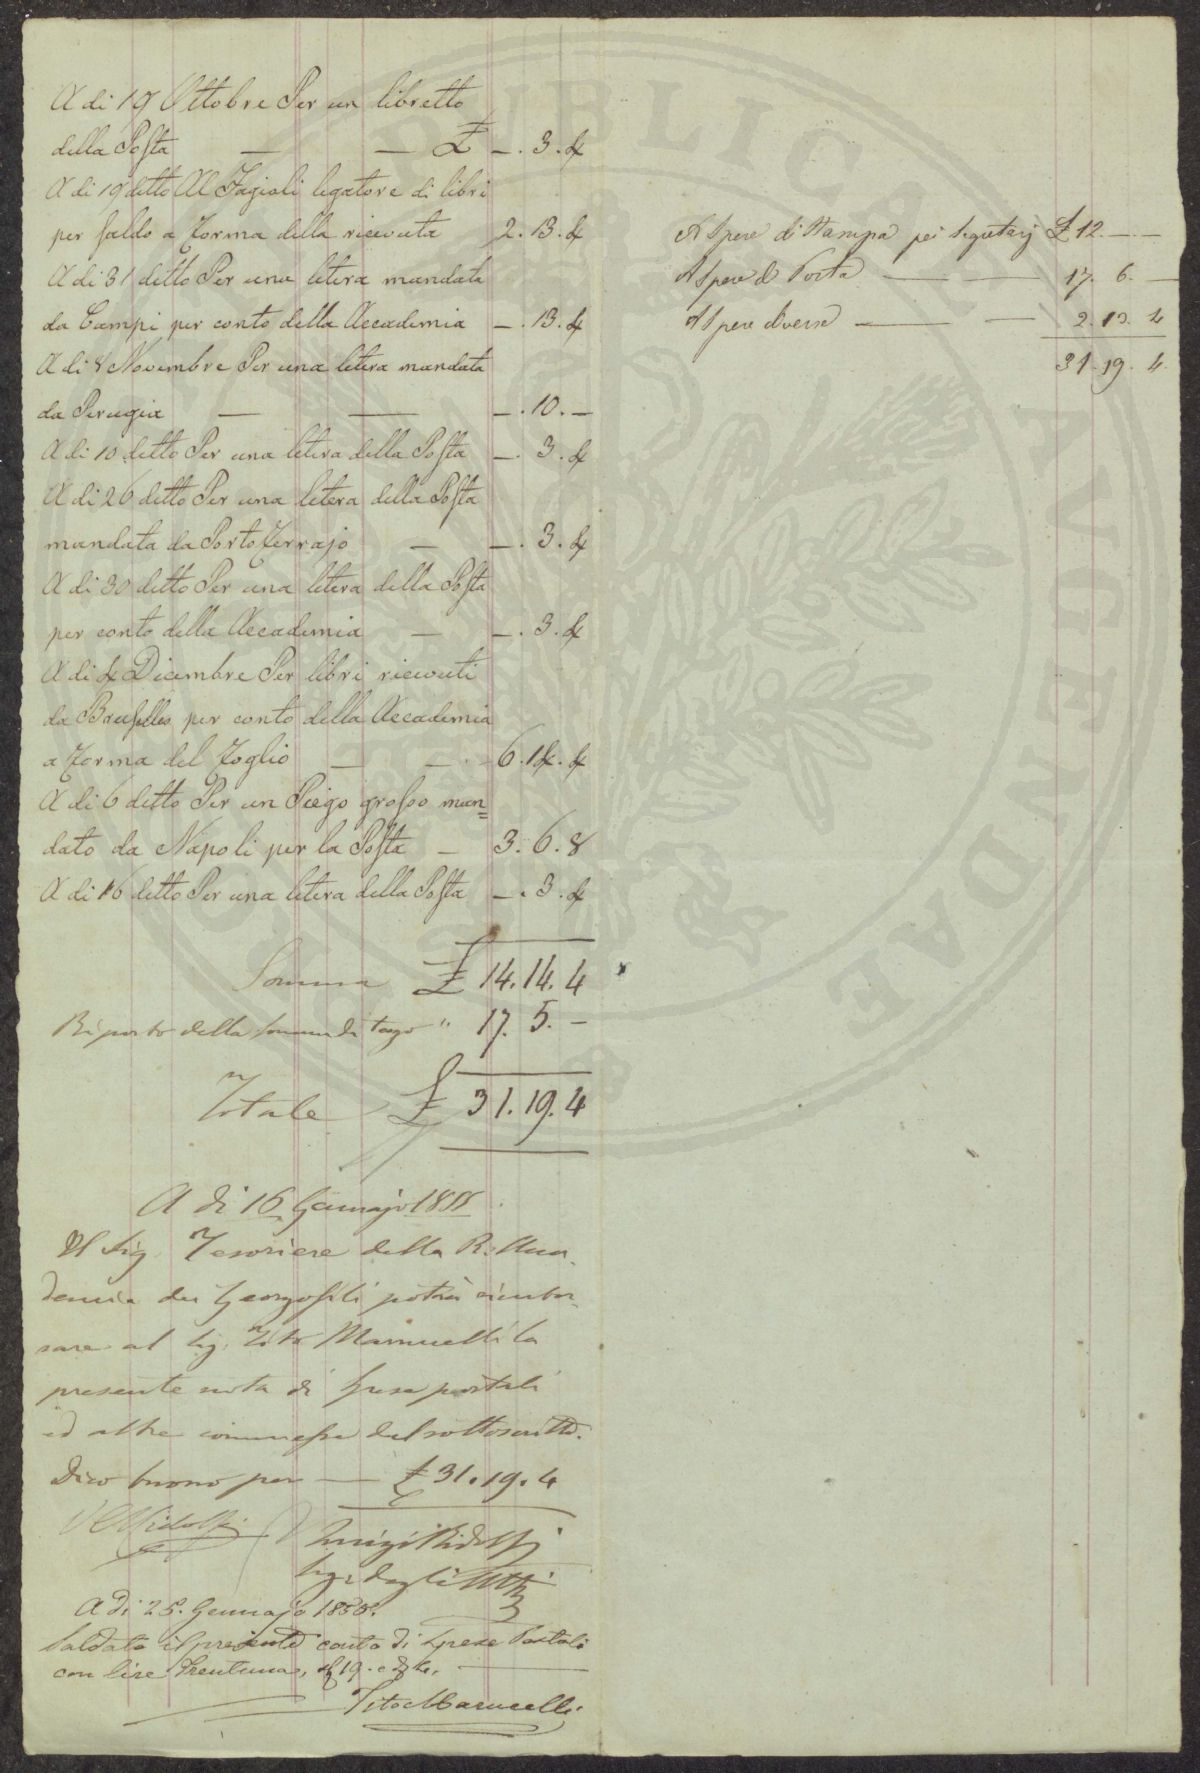 A di 19 Ottobre Per un libretto
della Posta — — £ —. 3. 4
A di 19 ditto Al Fagioli legatore di libri
per saldo a forma della ricevuta 2. 13. 4
A di 31 ditto Per una letera mandata
da Campi per conto della Accademia —. 13. 4
A di 8 Novembre Per una letera mandata
da Perugia — — —. 10. —
A di 10 ditto Per una letera della Posta —. 3. 4
A di 26 ditto Per una letera della Posta
mandata da Porto Ferrajo — —. 3. 4
A di 30 ditto Per una letera della Posta
per conto della Accademia — —. 3. 4
A di 4 Dicembre Per libri ricevuti
da Brusselles per conto della Accademia
a forma del Foglio — — 6. 14. 4
A di 6 ditto Per un Piego grosso man=
dato da Napoli per la Posta — 3. 6. 8
A di 16 ditto Per una letera della Posta —. 3. 4
Somma £ 14. 14. 4
Riporto della somma di tergo " 17. 5. —
Totale £ 31. 19. 4
A di 16 Gennajo 18
Il Sig. Tesoriere della R. Acca-
demia dei Georgofili potrà rimbor-
sare al Sig. Tito Marucelli la
presente nota di spese postali
ed altre commesse dal sottoscritto.
Dico buono per — £ 31. 19. 4
Ridolfi
Luigi Ridolfi
Seg. degli Atti
A di 25. Gennajo 1855.
Saldato il presente conto di spese Postali
con lire Trentuna, 19. e 4.
Tito Marucelli
A Spese di Stampa pei Segretarj £ 12. — —
A Spese di Posta — — 17. 6. —
A Spese diverse — — 2. 13. 4
31. 19. 4.
PUBLICAE
AVGENDAE